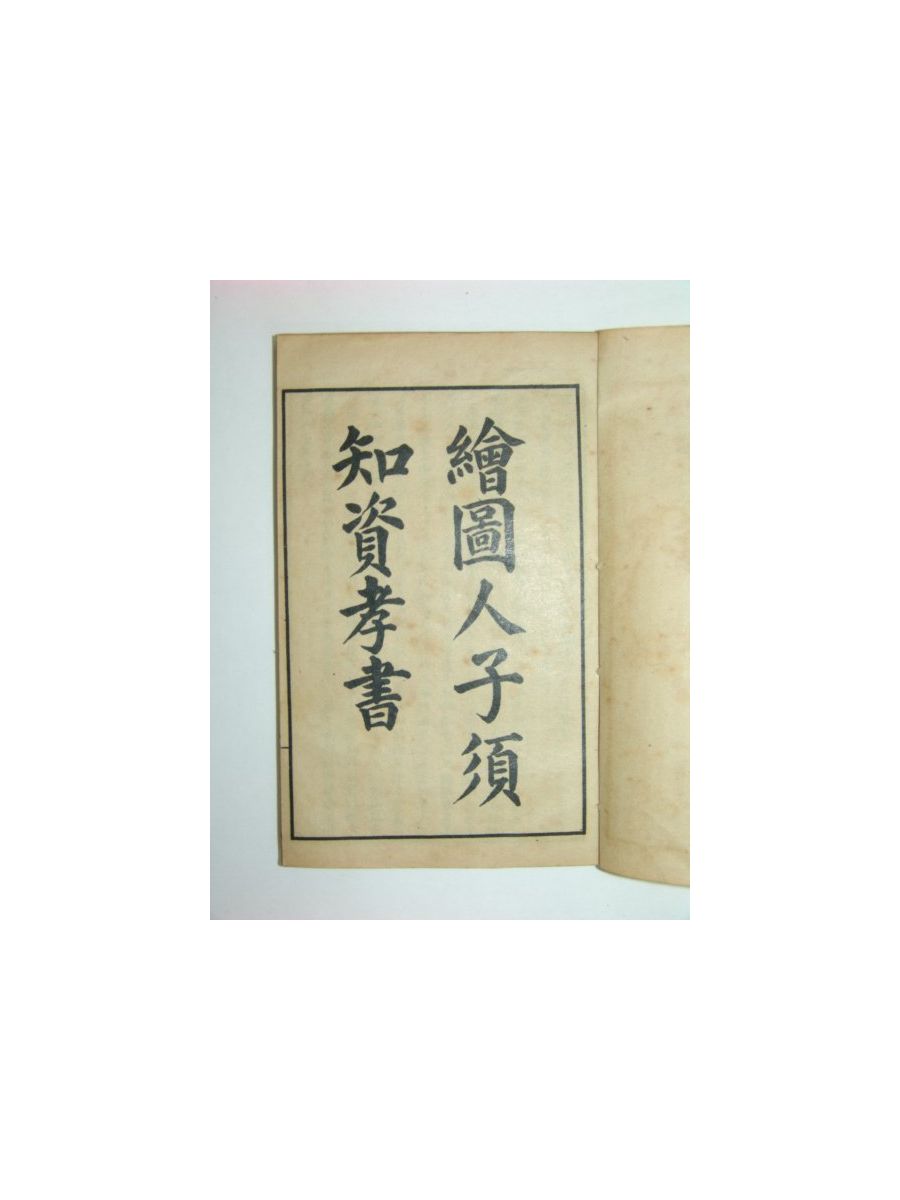 繪圖人子須
知資孝書